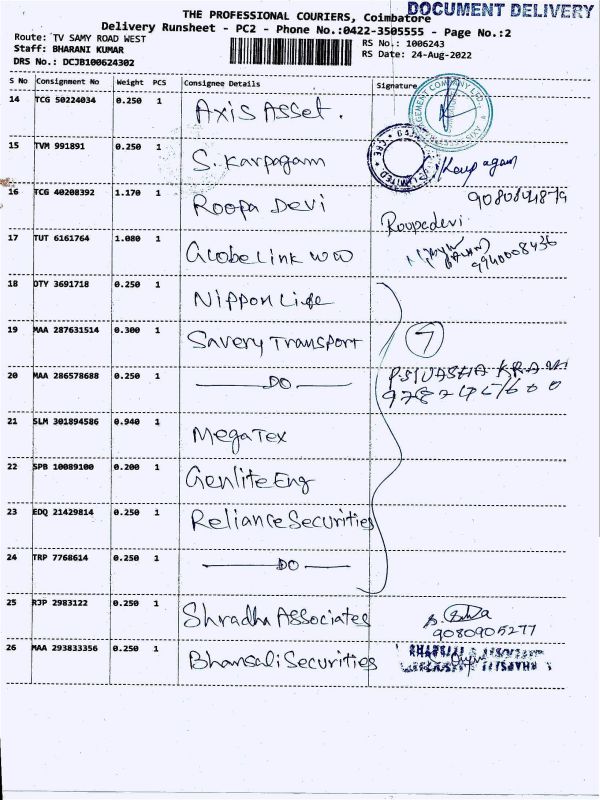 DOCUMENT DELIVERY
THE PROFESSIONAL COURIERS, Coimbatore
Delivery Runsheet - PC2 - Phone No.:0422-3505555 - Page No.:2
Route: TV SAMY ROAD WEST
Staff: BHARANI KUMAR
DRS No.: DCJB100624302
RS No.: 1006243
RS Date: 24-Aug-2022
S No Consignment No Weight PCS Consignee Details Signature
14 TCG 50224034 0.250 1 Axis Asset.
15 TVM 991891 0.250 1 S. Karpagam
16 TCG 40208392 1.170 1 Roopa Devi
Roopadevi
17 TUT 6161764 1.080 1 Globe Link WW
9940008436
18 OTY 3691718 0.250 1 Nippon Life
19 MAA 287631514 0.300 1 Savery Transport 7
20 MAA 286578688 0.250 1 DO
21 SLM 301894586 0.940 1 Mega Tex
22 SPB 10089100 0.200 1 Genlite Eng
23 EDQ 21429814 0.250 1 Reliance Securities
24 TRP 7768614 0.250 1 DO
25 RJP 2983122 0.250 1 Shradha Associates
9080905277
26 MAA 293833356 0.250 1 Bhansali Securities